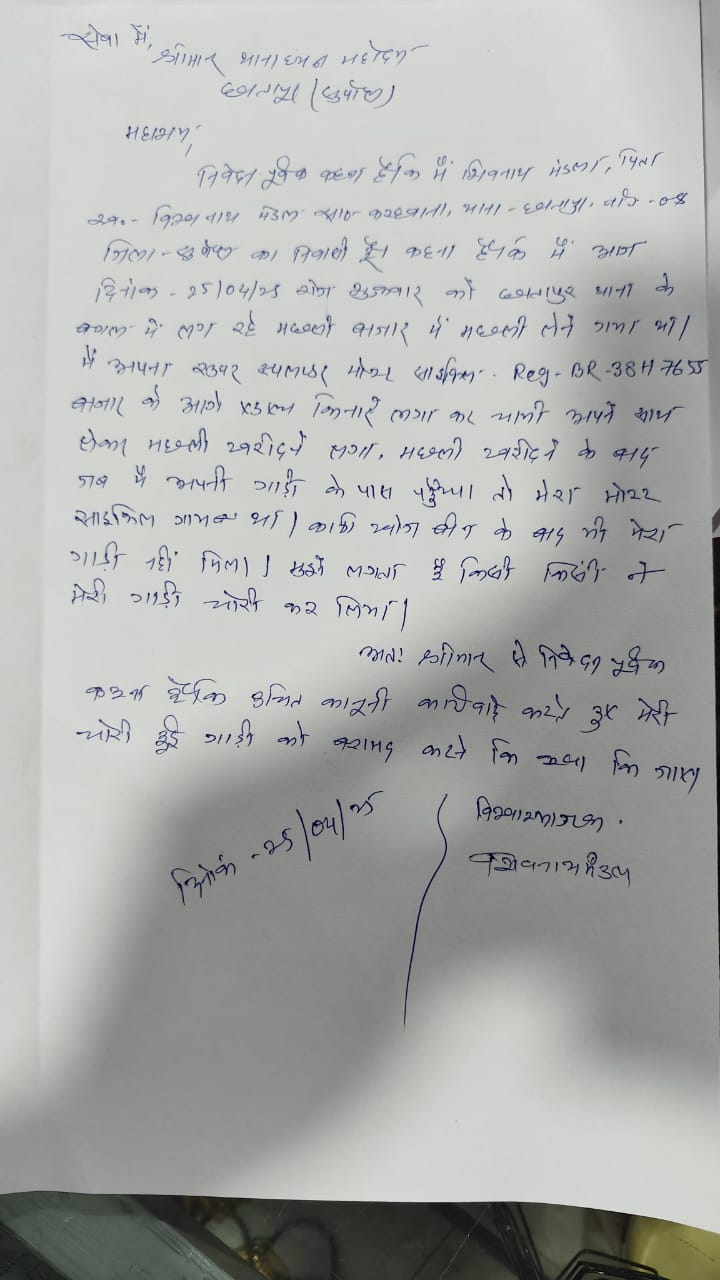 सेवा में,
श्रीमान थाना ध्यक्ष महोदय
छातापुर (सुपौल)
महाशय,
निवेदन पूर्वक कहना है कि मैं शिवनाथ मंडल, पिता
स्व०- विश्वनाथ मंडल साo थाना - छातापुर, वार्ड -08
जिला - सुपौल का निवासी हूँ। कहना है कि मैं आज
दिनांक - 25/04/25 रोज शुक्रवार को छातापुर थाना के
बगल में लग रहे मछली बाजार में मछली लेने गया था।
मैं अपना सुपर स्पलेंडर मोटर साइकिल. Reg- BR-38H 7655
बाजार के आगे किनारे लगा कर चाभी अपने साथ
लेकर मछली खरीदने लगा, मछली खरीदने के बाद
जब मैं अपनी गाड़ी के पास पहुँचा तो मेरा मोटर
साइकिल गायब था। काफी खोज बीन के बाद भी मेरा
गाड़ी नहीं मिला। मुझे लगता है किसी किसी ने
मेरी गाड़ी चोरी कर लिया।
अतः श्रीमान से निवेदन पूर्वक
कहना है कि उचित कानूनी करते हुए मेरी
चोरी हुई गाड़ी को बरामद करने कि कृपा कि जाए।
दिनांक - 25/04/25
शिवनाथ मंडल